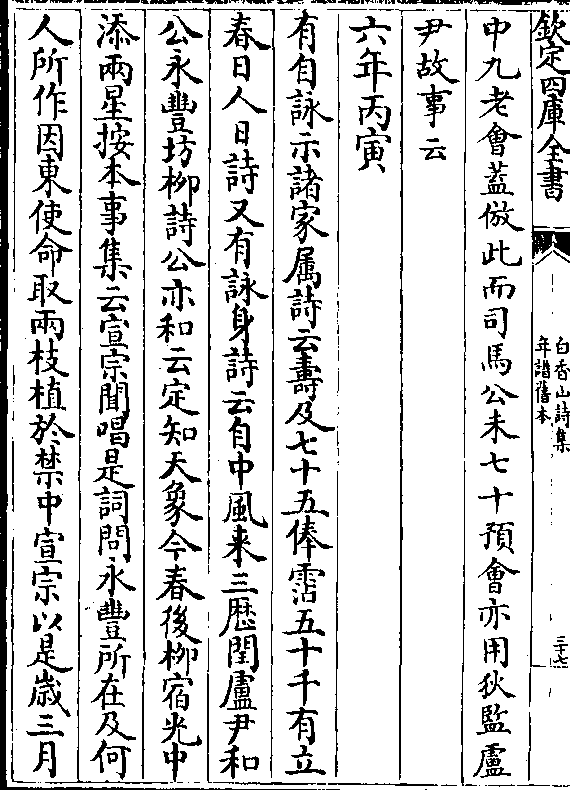 欽定四庫全書
白香山詩集
年譜舊本
三十七
中九老㑹葢倣此而司馬公未七十預㑹亦用狄監盧
尹故事云
六年丙寅
有自詠示諸家属詩云壽及七十五俸霑五十千有立
春日人日詩又有詠身詩云自中風来三歴閏盧尹和
公永豐坊栁詩公亦和云定知天象今春後栁宿光中
添兩星按本事集云宣宗聞唱是詞問永豐所在及何
人所作因東使命取兩枝植於禁中宣宗以是嵗三月